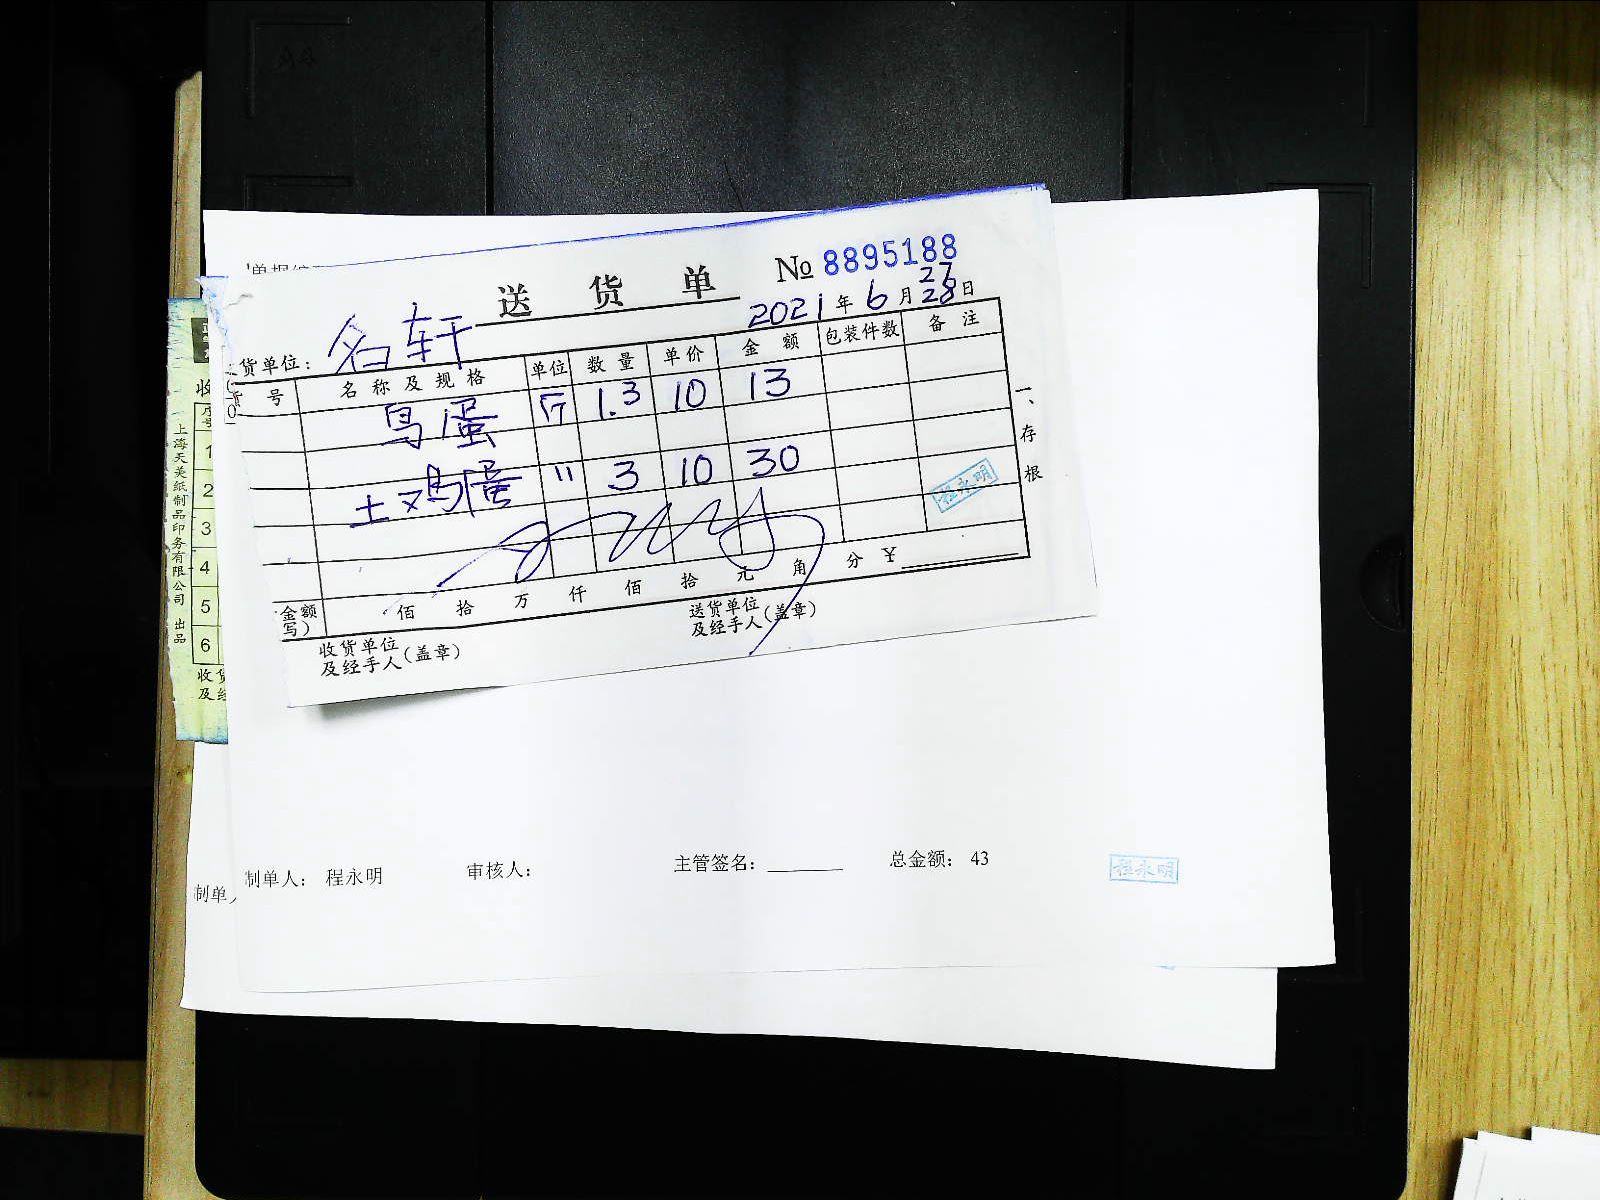 送货单 № 8895188
27
2021年6月28日
货单位: 名轩
号 名称及规格 单位 数量 单价 金额 包装件数 备注
鸟蛋 斤 1.3 10 13
土鸡蛋 " 3 10 30
程永明
一、存根
金额 佰 拾 万 仟 佰 拾 元 角 分 ¥
写)
收货单位 送货单位
及经手人(盖章) 及经手人(盖章)
收
序号
1
2
3
4
5
6
收货
及经
上海天美纸制品印务有限公司 出品
制单人: 程永明 审核人: 主管签名: 总金额: 43
程永明
制单人